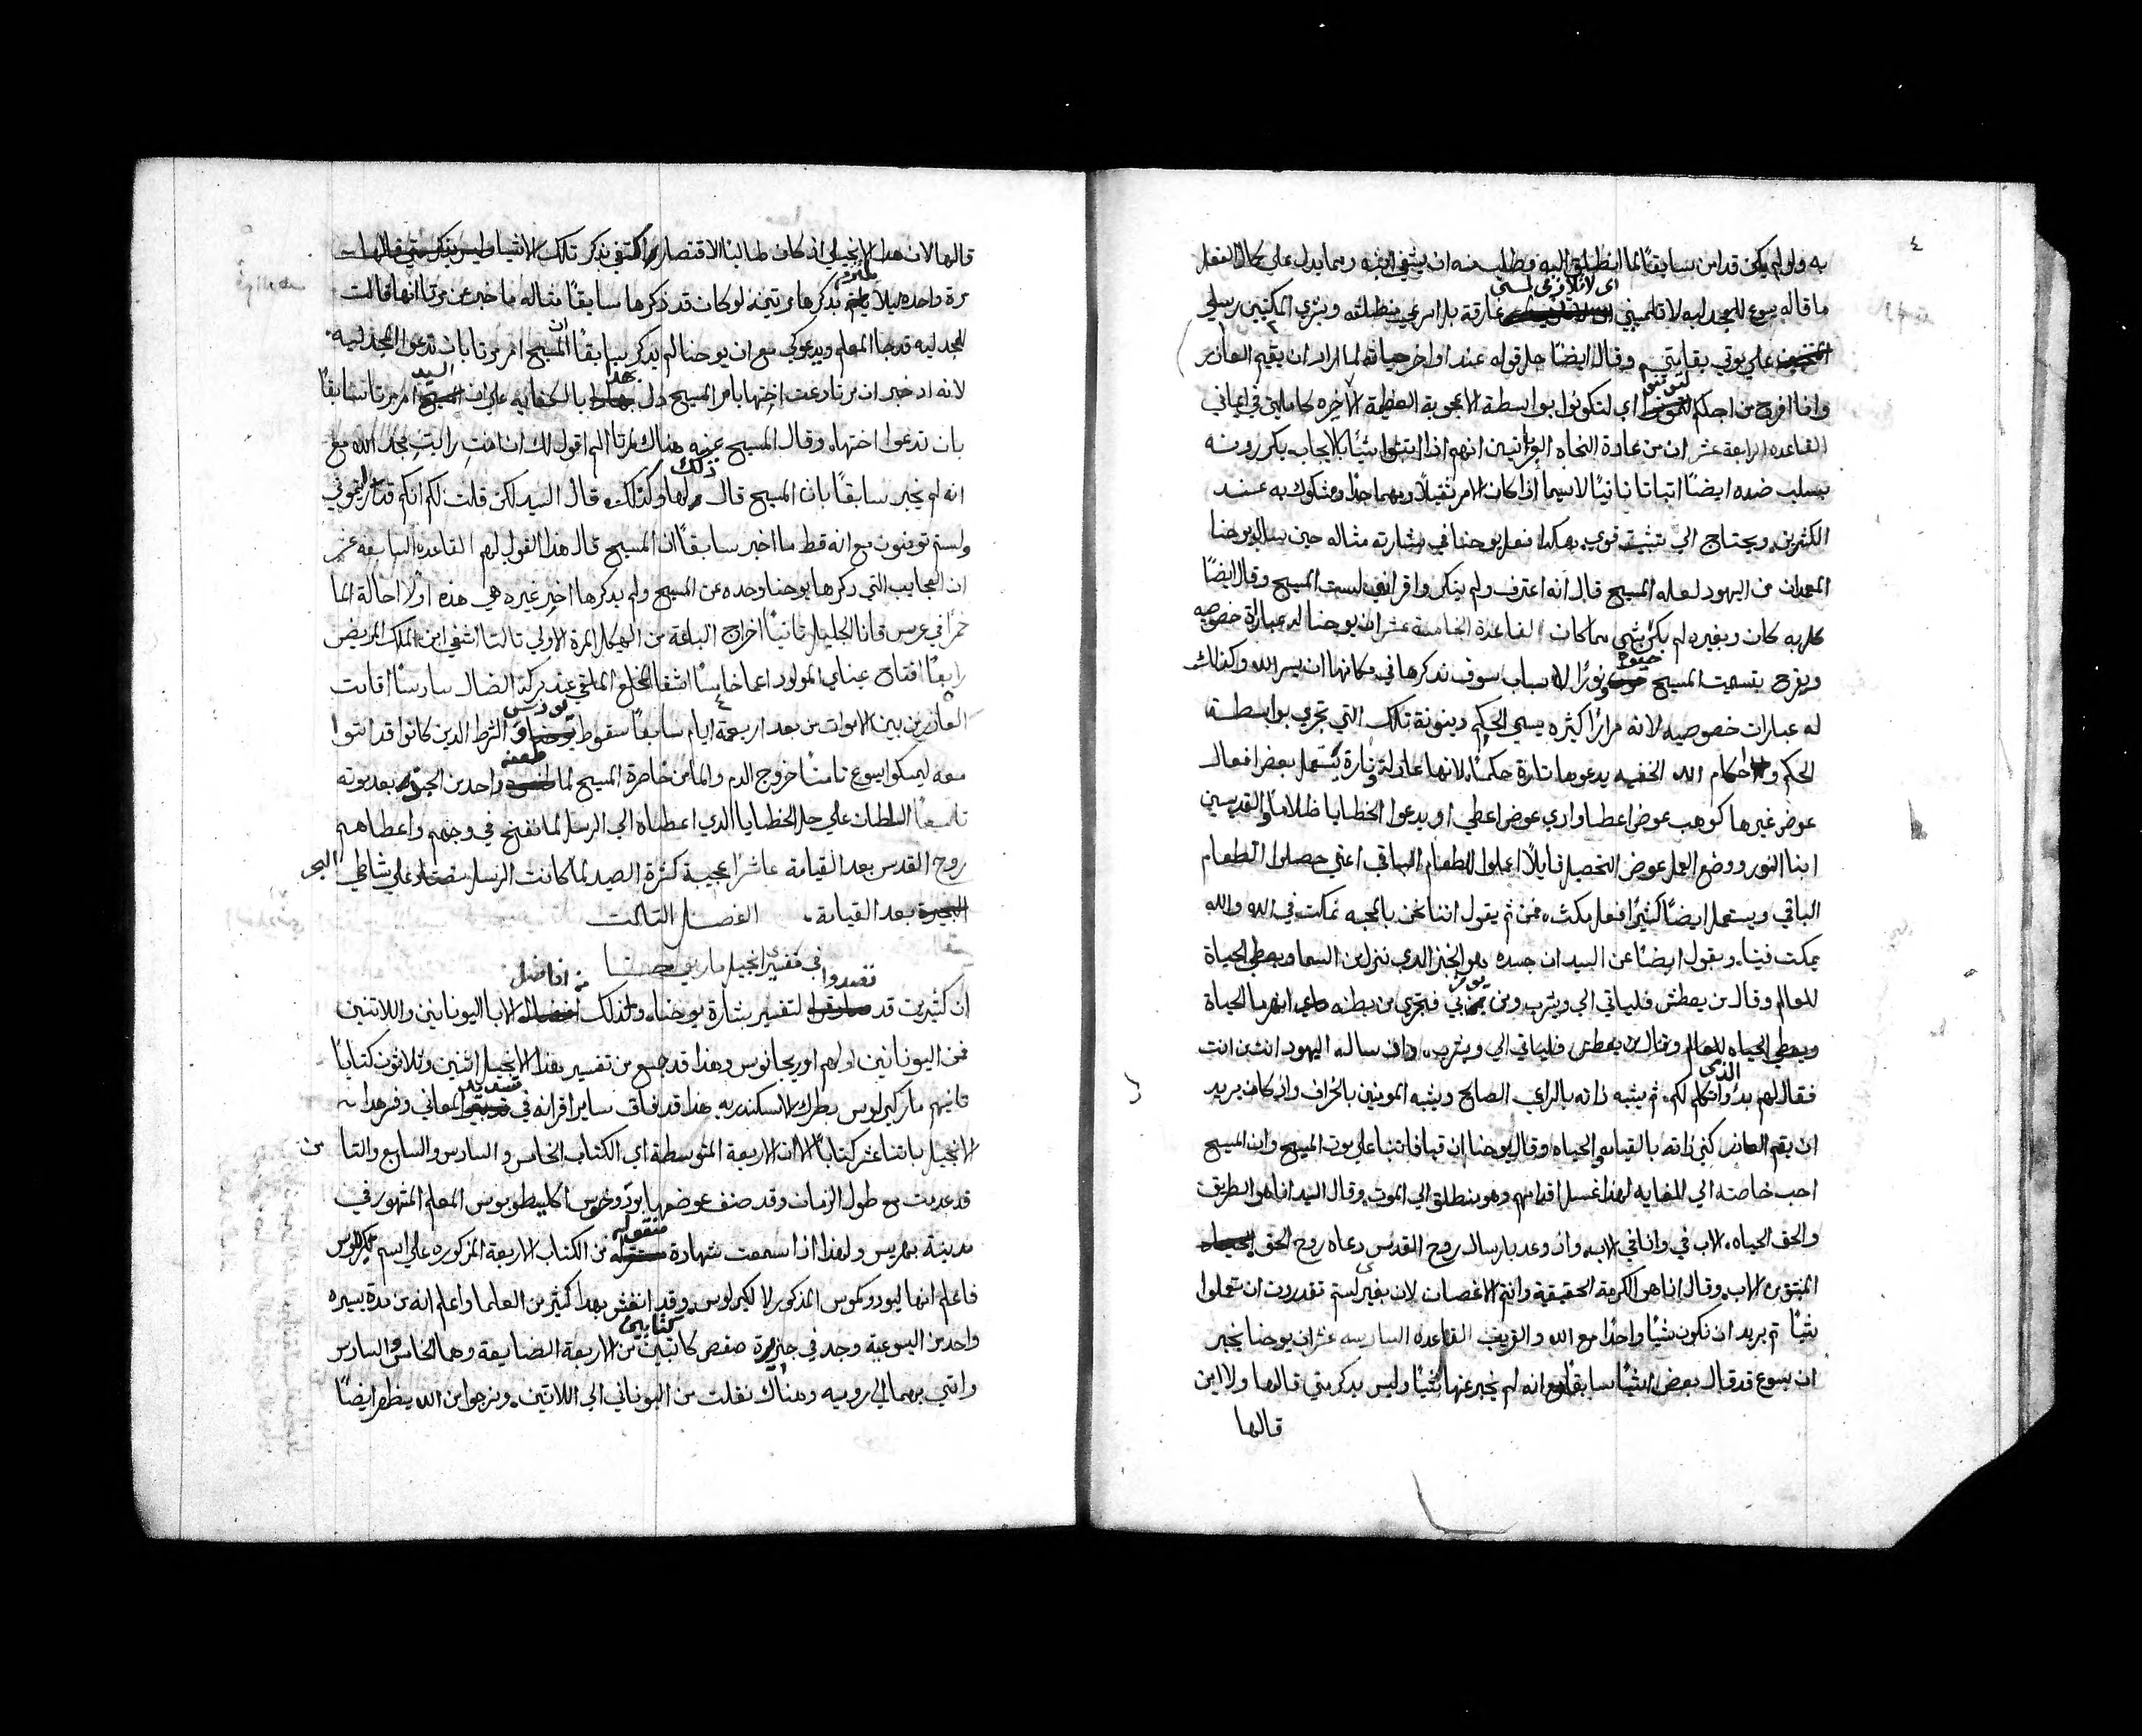 ٤
به ولو لم يكن قد امن سابقًا لما انطلق اليه وطلب منه ان يشفي ابنه ومما يدل علي كمال الفعل
ما قاله يسوع للمجدليه لا تلمسيني اي لا تلازمي لمسي غارقة بل امرعي منطلقه وبشري المكتيبين رسلي
علي موتي بقيامتي وقال ايضًا حل قوله عند اواخر حياته لما اراد ان يقيم العازر
وانا افرح من اجلكم لتومنوا اي لتكونوا بواسطة الاعجوبة العظيمة الاخيره كاملين في ايماني
القاعده الرابعة عشر ان من عادة النحاه العبرانيين انهم اذا اثبتوا شيًا بالايجاب يكررونه
بسلب ضده ايضًا اثباتا ثانيًا لاسيما اذا كان الامر ثقيلًا ومهما جدًا ومشكوك به عند
الكثيرين ويحتاج الي تثبيت قوي هكذا فعل يوحنا في بشارته مثاله حين سال يوحنا
المعمدان من اليهود لعله المسيح قال انه اعترف ولم ينكر واقر انني لست المسيح وقال ايضًا
كل به كان وبغيره لم يكن شي مما كان القاعدة الخامسة عشر ان يوحنا له عبارة خصوصيه
ويفرح بتسميت المسيح حيوة ونورًا لاسباب سوف نذكرها في مكانها ان يسر الله وكذلك
له عبارات خصوصيه لانه مرارًا كثيره يسمي الحكم دينونة تلك التي تجري بواسطة
الحكم واحكام الله الخفيه يدعوها تارة حكمًا لانها عادلة وتارة يستعمل بعض افعال
عوض غيرها كوهب عوض اعطا واري عوض اعطي او يدعوا الخطايا ظلامًا والقديسين
ابنا النور ووضع العمل عوض التحصيل قايلًا اعملوا للطعام الباقي اعني حصلوا الطعام
الباقي ويستعمل ايضًا كثيرًا فعل مكث، فمن ثم يقول اننا نحن بالمحبه نمكث في الله والله
يمكث فينا، ويقول ايضًا عن السيد ان جسده هو الخبز الذي نزل من السما ويعطي الحياة
للعالم وقال من يعطش فلياتي الي ويشرب ومن يومن بي فتجري من بطنه انهر ما الحياة
ويعطي الحياه للعالم وقال من يعطش فلياتي الي ويشرب، واذ ساله اليهود انت من انت
فقال لهم بدو الذي اكلم لكم، ثم يشبه ذاته بالراعي الصالح ويشبه المومنين بالخراف واذ كان يريد
ان يقيم العازر كني ذاته بالقيامه والحياه وقال يوحنا ان قيافا تنبا علي موت المسيح وان المسيح
احب خاصته الي الغايه لهذا غسل اقدامهم وهو منطلق الي الموت، وقال السيد انا هو الطريق
والحق الحياه، الاب في وانا في الاب، واذ وعد بارسال روح القدس دعاه روح الحق
المنبثق من الاب، وقال انا هو الكرمة الحقيقية وانتم الاغصان لان بغيري لستم تقدرون ان تعملوا
شيًا ثم يريد ان نكون شيًا واحدًا مع الله والقريب القاعده السادسه عشر ان يوحنا يخبر
ان يسوع قد قال بعض اشيًا سابقًا مع انه لم يخبر عنها شيًا وليس يذكر متي قالها ولا اين
قالها
قالها لان هذا الانجيلي اذ كان طالبا الاقتصار اكتفي بذكر تلك الاشيا وليس بذكر متي قالها
مرة واحده ليلا يلتزم بذكرها مرتين لو كان قد ذكرها سابقًا مثاله ما خبر عن مرتا انها قالت
للمجدليه قد جا المعلم ويدعوكي مع ان يوحنا لم يذكر سابقًا ان المسيح امر مرتا بان تدعوا المجدليه
لانه اذ خبر ان مرتا دعت اختها بامر المسيح دل بهذا بالكفايه علي ان السيد امر مرتا سابقًا
بان تدعوا اختها، وقال المسيح عينه هناك لمرتا الم اقول لك ان امنت رايت مجد الله مع
انه لم يخبر سابقًا بان المسيح قال ذلك لها وكذلك، قال السيد لكن قلت لكم انكم قد رايتموني
ولستم تومنون مع انه قط ما اخبر سابقًا ان المسيح قال هذا القول لهم القاعده السابعه عشر
ان العجايب التي ذكرها يوحنا وحده عن المسيح ولم يذكرها اخر غيره هي هذه اولًا احالة الما
خمرًا في عرس قانا الجليل ثانيًا اخراج الباعة من الهيكل المرة الاولي ثالثا اشفي ابن الملك المريض
رابعًا افتتاح عيناي المولود اعما خامسًا اشفا المخلع الملقي عند بركة الضان سادسًا اقامت
العازر من بين الاموات من بعد اربعة ايام سابعًا سقوط يودس والشرط الذين كانوا قد اتوا
معه ليمسكوا يسوع ثامنًا خروج الدم والما من خاصرة المسيح لما طعنه واحد من الجند بعد موته
تاسعًا السلطان علي حل الخطايا الذي اعطاه الي الرسل لما نفخ في وجههم واعطاهم
روح القدس بعد القيامة عاشرًا عجيبة كثرة الصيد لما كانت الرسل يصطاد علي شاطي البحر
البحيرة بعد القيامة، الفصل الثالث
في مفسري انجيل مار يوحنا
ان كثيرين قد قصدوا لتفسير بشارة يوحنا، ولذلك من افاضل الابا اليونانيين واللاتنيين
فمن اليونانيين اولهم اوريجانوس وهذا قد جمع من تفسير هذا الانجيل اثنين وثلاثون كتابًا
ثانيهم مار كيرلوس بطرك الاسكندريه هذا قد فاق ساير اقرانه في المعاني وفسر هذا
الانجيل باثنا عشر كتابًا الا ان الاربعة المتوسطة اي الكتاب الخامس والسادس والسابع والثامن
قد عدمت مع طول الزمان وقد صنف عوضها يودوخوس اكليطوبوس المعلم المشهور في
مدينة بهريس ولهذا اذا سمعت شهادة منقوله من الكتاب الاربعة المذكوره علي اسم كيرلوس
فاعلم انها ليودوكوس المذكور لا لكيرلوس، وقد انغش بهذا كثير من العلما واعلم انه من مدة يسيره
واحد من اليسوعية وجد في جزيرة كتابين من الاربعة الضايعة وهما الخامس والسادس
واتي بهما الي روميه وهناك نقلت من اليوناني الي اللاتين، ونرجوا من الله يظهر ايضًا